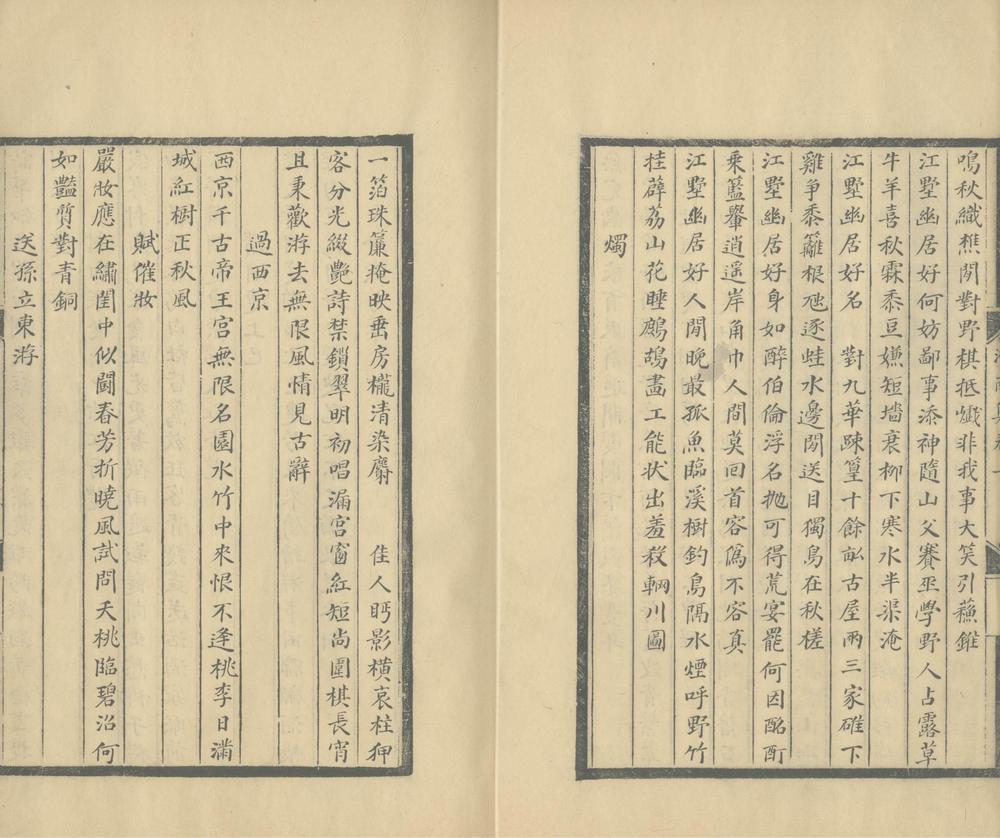 鳴秋織樵閒對野棋抵戲非我事大笑引蘓錐
江墅幽居好何妨鄙事添神隨山父賽巫學野人占露草
牛羊喜秋霖黍豆嫌短墻衰柳下寒水半渠淹
江墅幽居好名 對九華踈篁十餘畝古屋兩三家碓下
雞爭黍籬根虺逐蛙水邊閒送目獨鳥在秋槎
江墅幽居好身如醉伯倫浮名抛可得荒宴罷何因酩酊
乘籃轝逍遥岸角巾人間莫回首容偽不容真
江墅幽居好人閒晚最孤魚臨溪樹釣鳥隔水煙呼野竹
挂薜荔山花睡鷓鴣畵工能狀出羞殺輞川圖
燭
一箔珠簾掩映垂房櫳清染麝 佳人眄影横哀柱狎
客分光綴艶詩禁鎖翠明初唱漏宫窗紅短尚圍棋長宵
且秉歡游去無限風情見古辭
過西京
西京千古帝王宫無限名園水竹中來恨不逢桃李日滿
城紅樹正秋風
賦催妝
嚴妝應在繡閨中似鬬春芳折曉風試問夭桃臨碧沼何
如豔質對青銅
送孫立東游